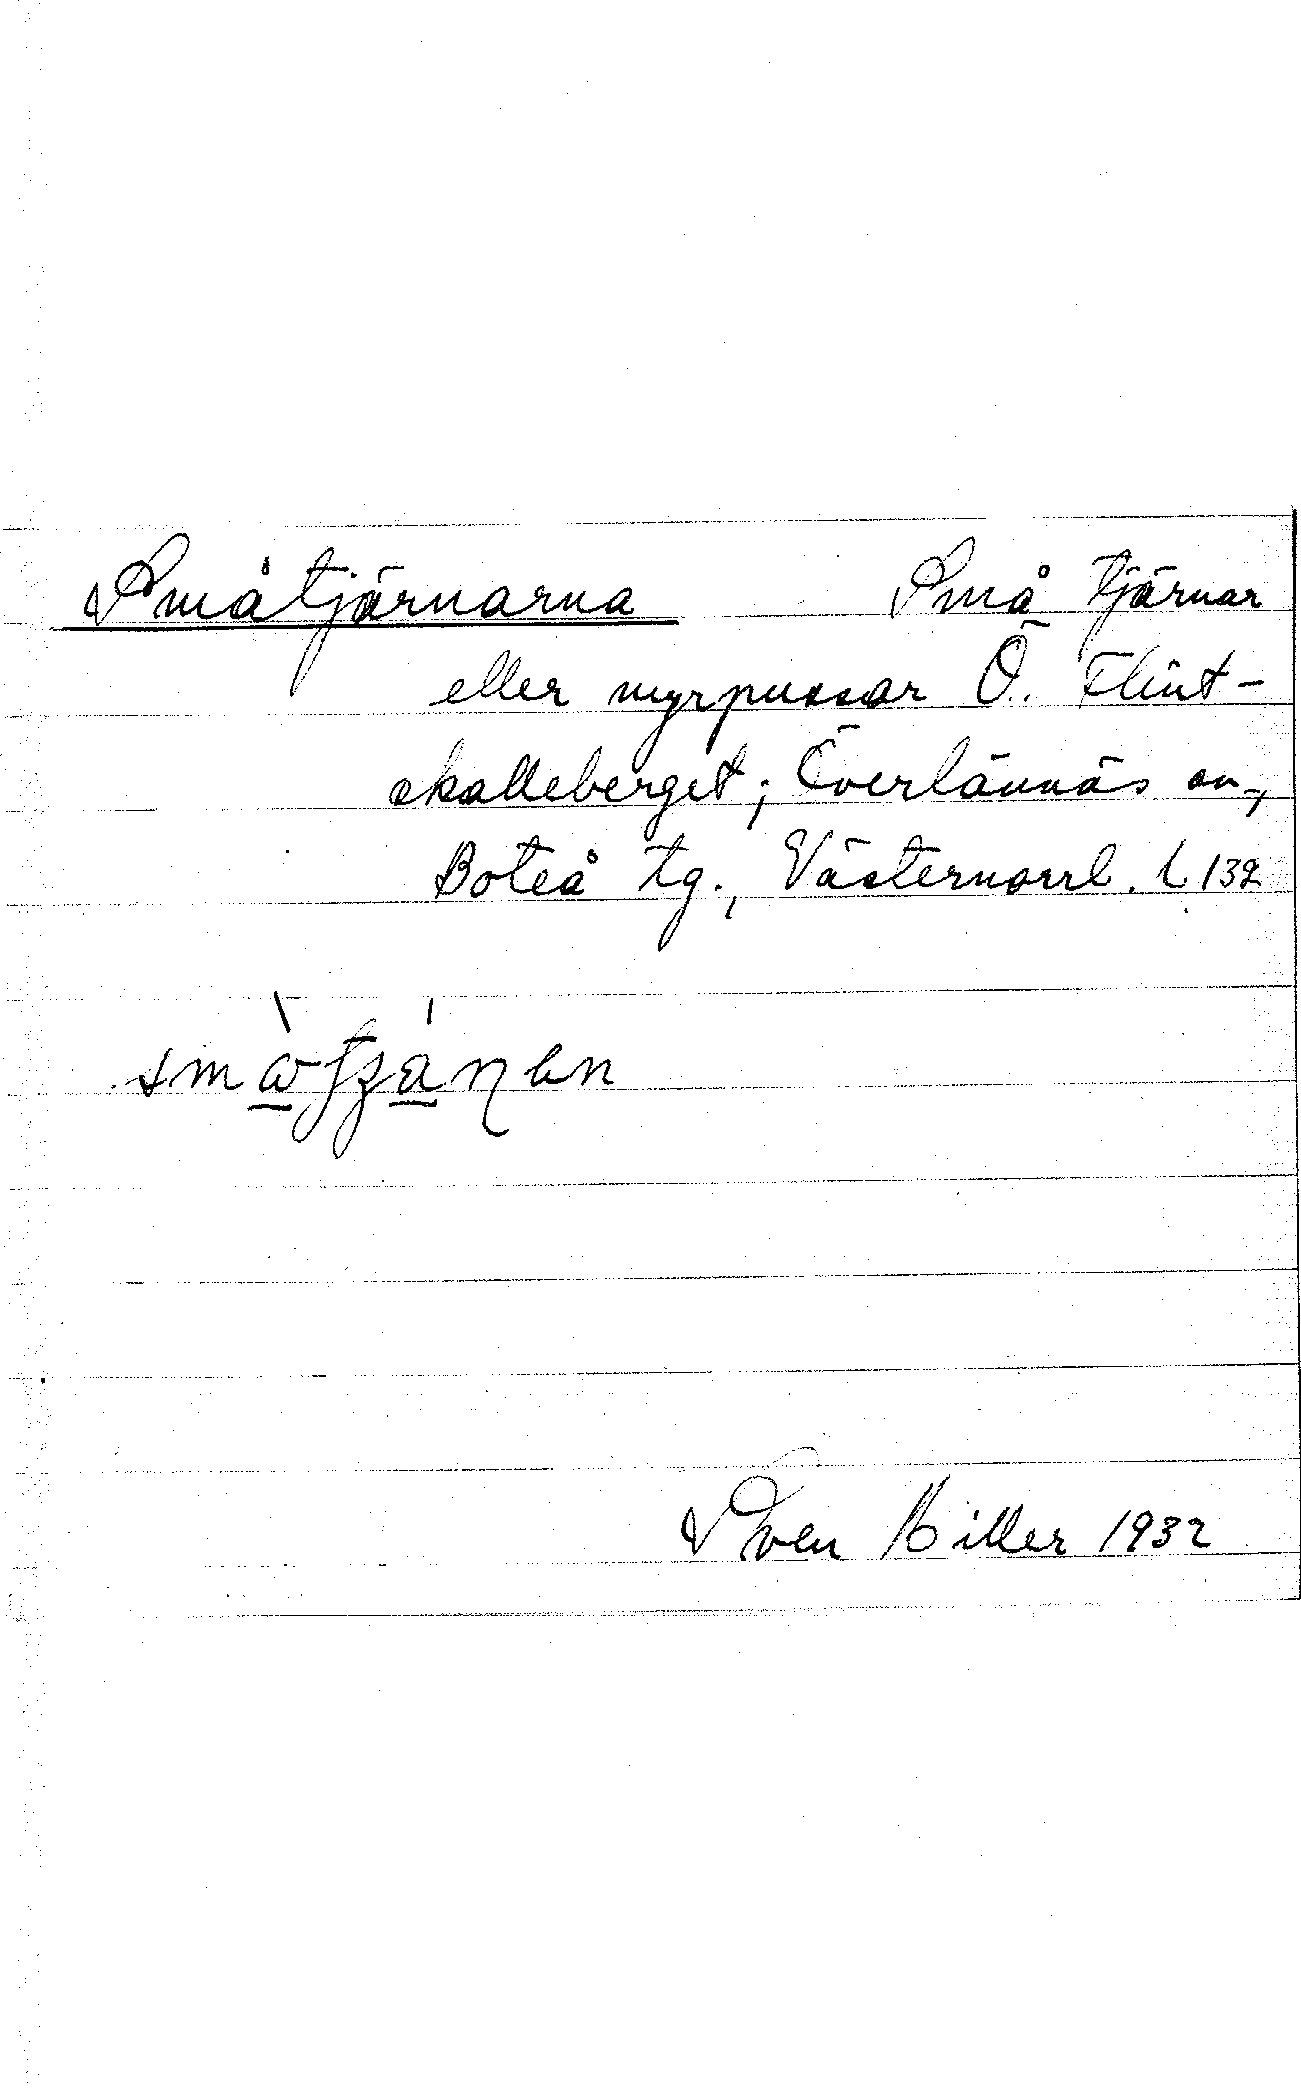 Småtjärnarna Små tjärnar
eller myrpussar Ö. Flint-
skalleberget; Överlännäs sn.,
Boteå tg., Västernorrl. l. 132
Sven Hiller 1932